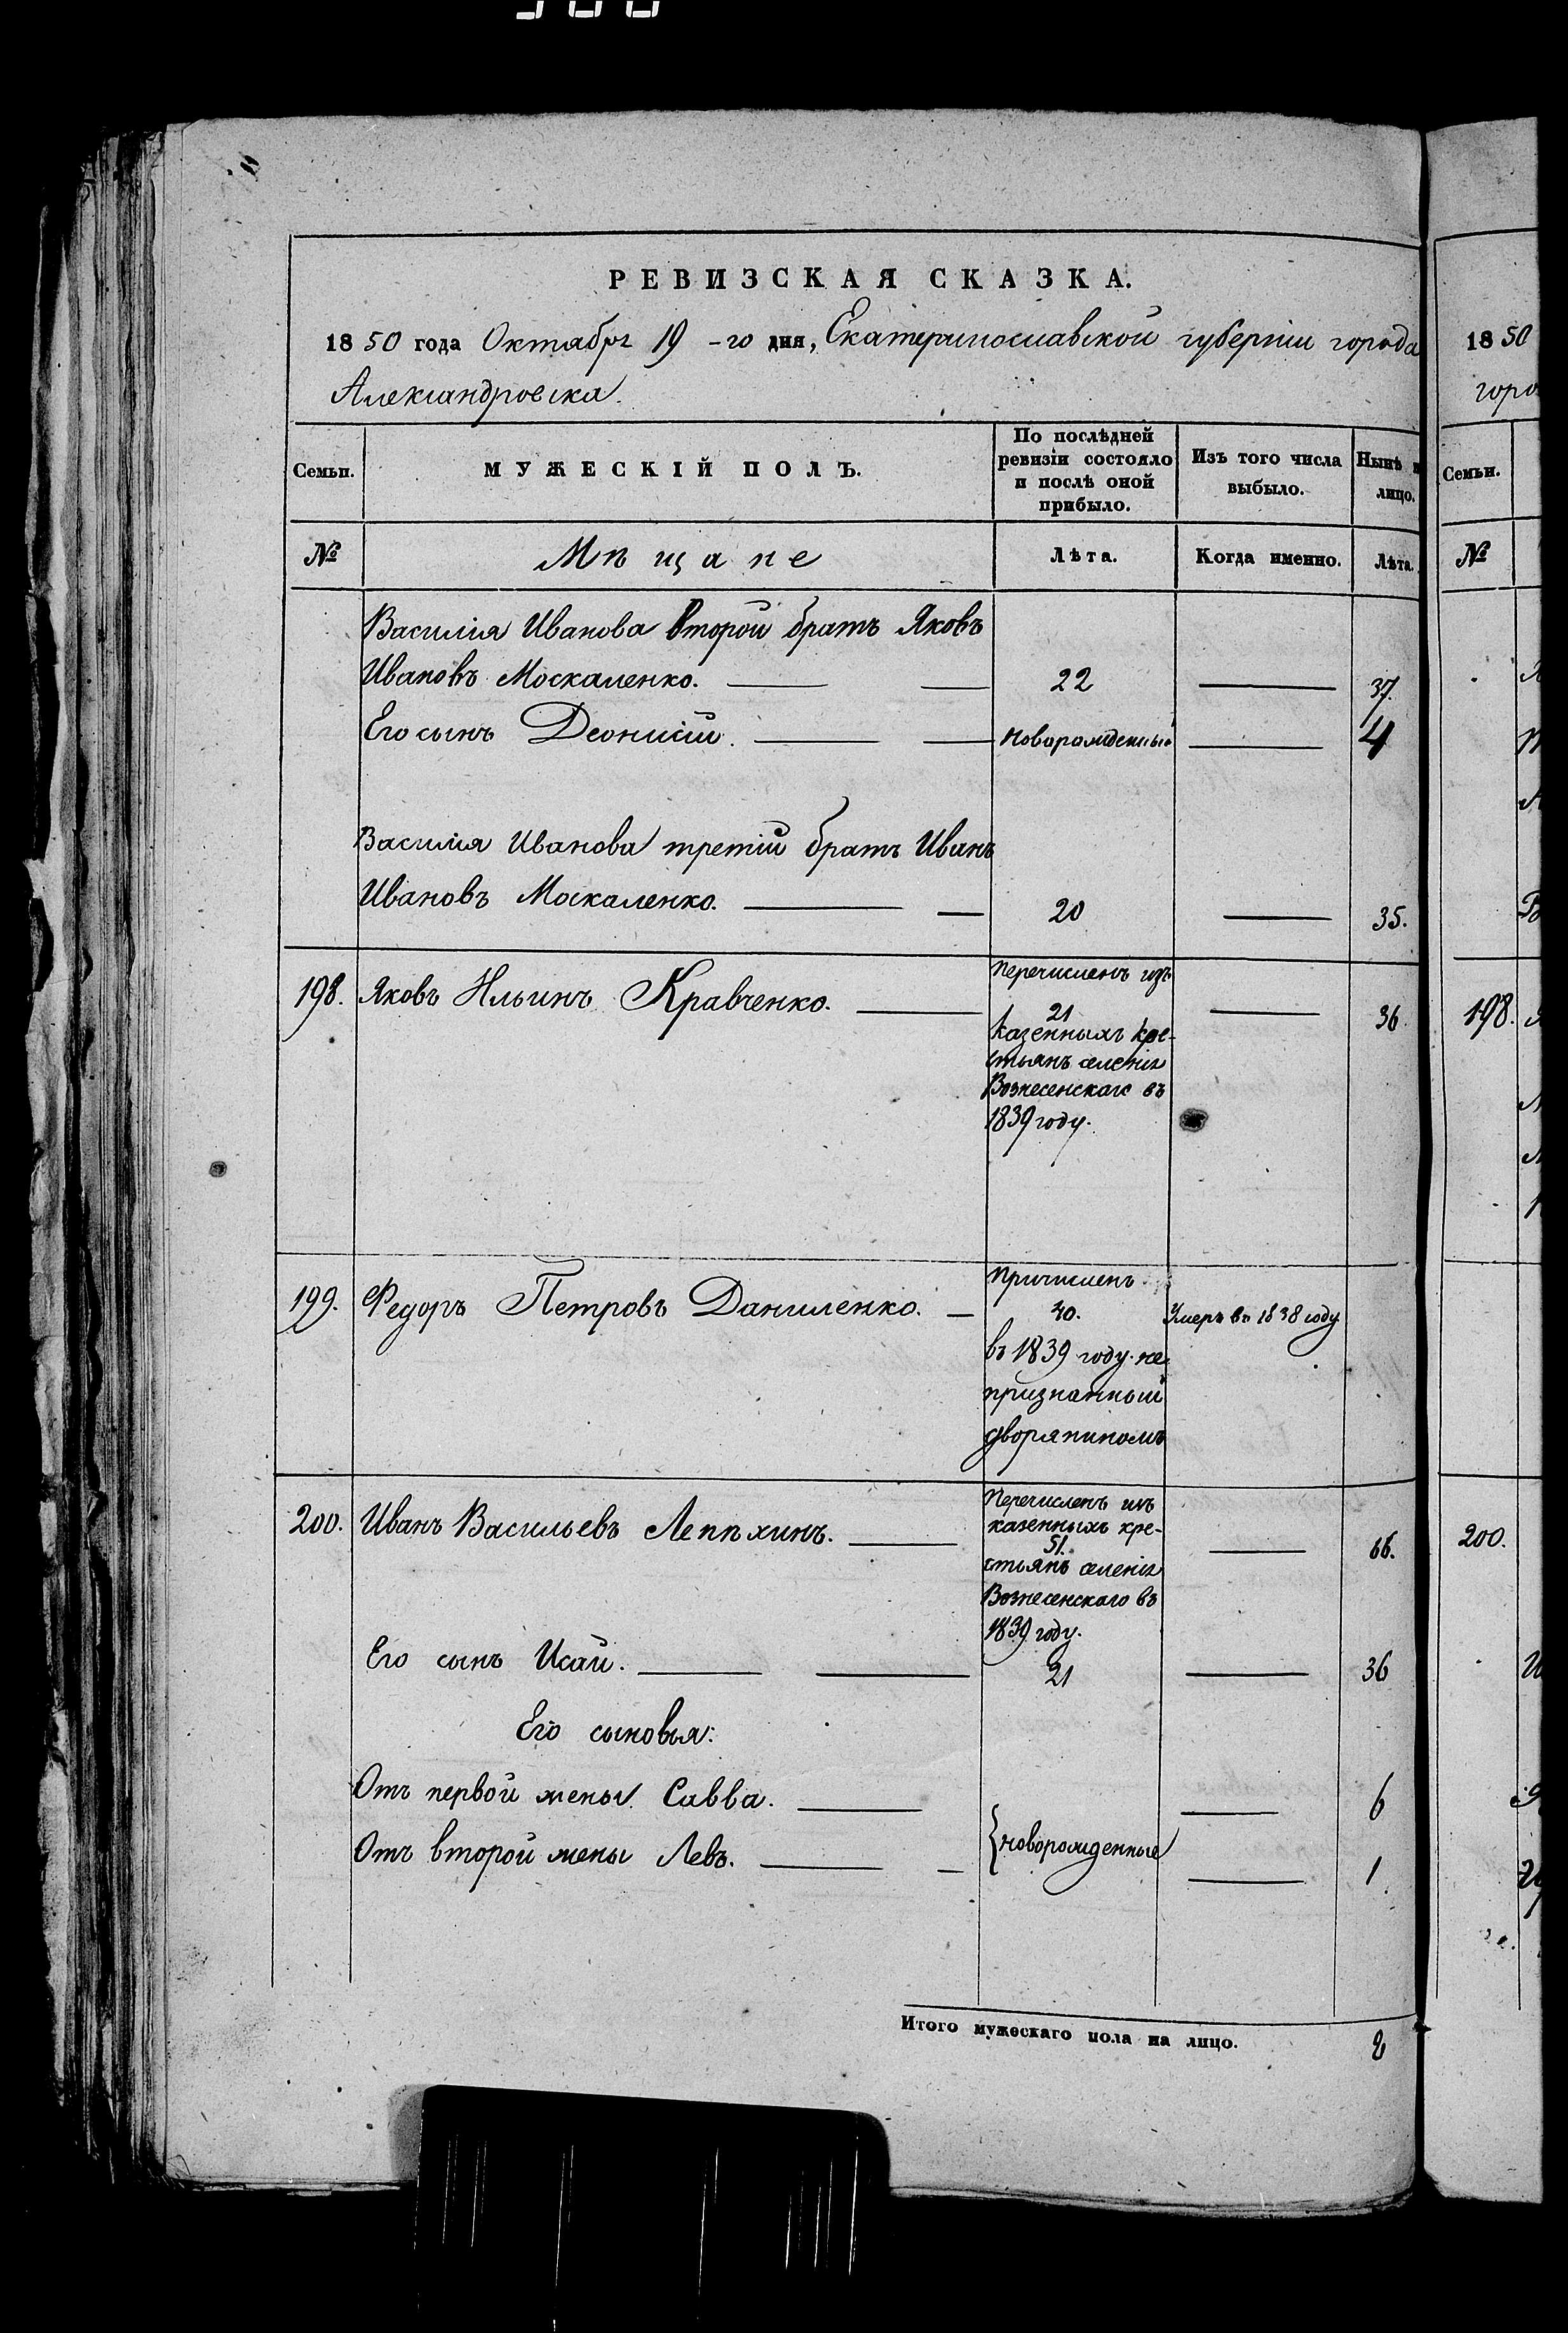 РЕВИЗСКАЯ СКАЗКА.
1850 года Октября 19-го дня, Екатеринославской губерніи города
Александровска.
Семьи.
МУЖЕСКІЙ ПОЛЪ.
По послѣдней
ревизіи состояло
и послѣ оной
прибыло.
Изъ того числа
выбыло.
Нынѣ
лицо.
№
Мѣщане
Лѣта.
Когда именно.
Лѣта.
Василія Иванова второй братъ Яковъ
Ивановъ Москаленко. 22 37.
Его сынъ Деонисій. новорожденный 4
Василія Иванова третій братъ Иванъ
Ивановъ Москаленко. 20 35.
198. Яковъ Ильинъ Кравченко. 36
перечисленъ изъ
21
казенныхъ кре-
стьянъ селенія
Вознесенскаго въ
1839 году.
199. Федоръ Петровъ Даниленко.
Причисленъ
40. Умеръ въ 1838 году
въ 1839 году не
признанный
дворяниномъ
200. Иванъ Васильевъ Лепѣхинъ. 66.
Перечисленъ изъ
казенныхъ кре-
51.
стьянъ селенія
Вознесенскаго въ
1839 году.
Его сынъ Исай. 21 36
Его сыновья:
Отъ первой жены Савва. 6
новорожденные
Отъ второй жены Левъ. 1
Итого мужескаго пола на лицо. 8
1850
горо
Семьи.
№
198.
200.